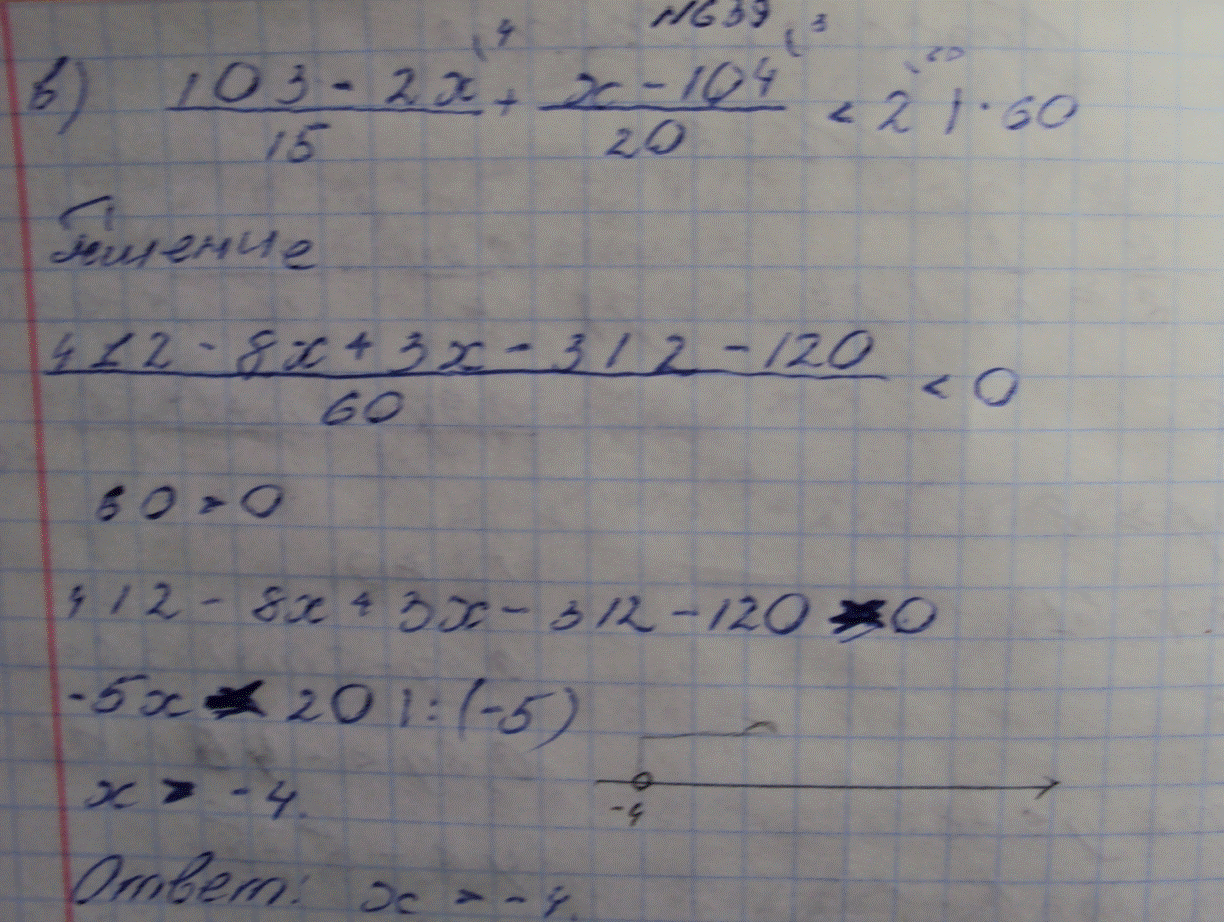 №639
в) (103 - 2x)/15 + (x - 104)/20 < 2 | · 60
4 3 60
Решение
(412 - 8x + 3x - 312 - 120)/60 < 0
60 > 0
412 - 8x + 3x - 312 - 120 < 0
-5x < 20 | : (-5)
x > -4.
-4
Ответ: x > -4.